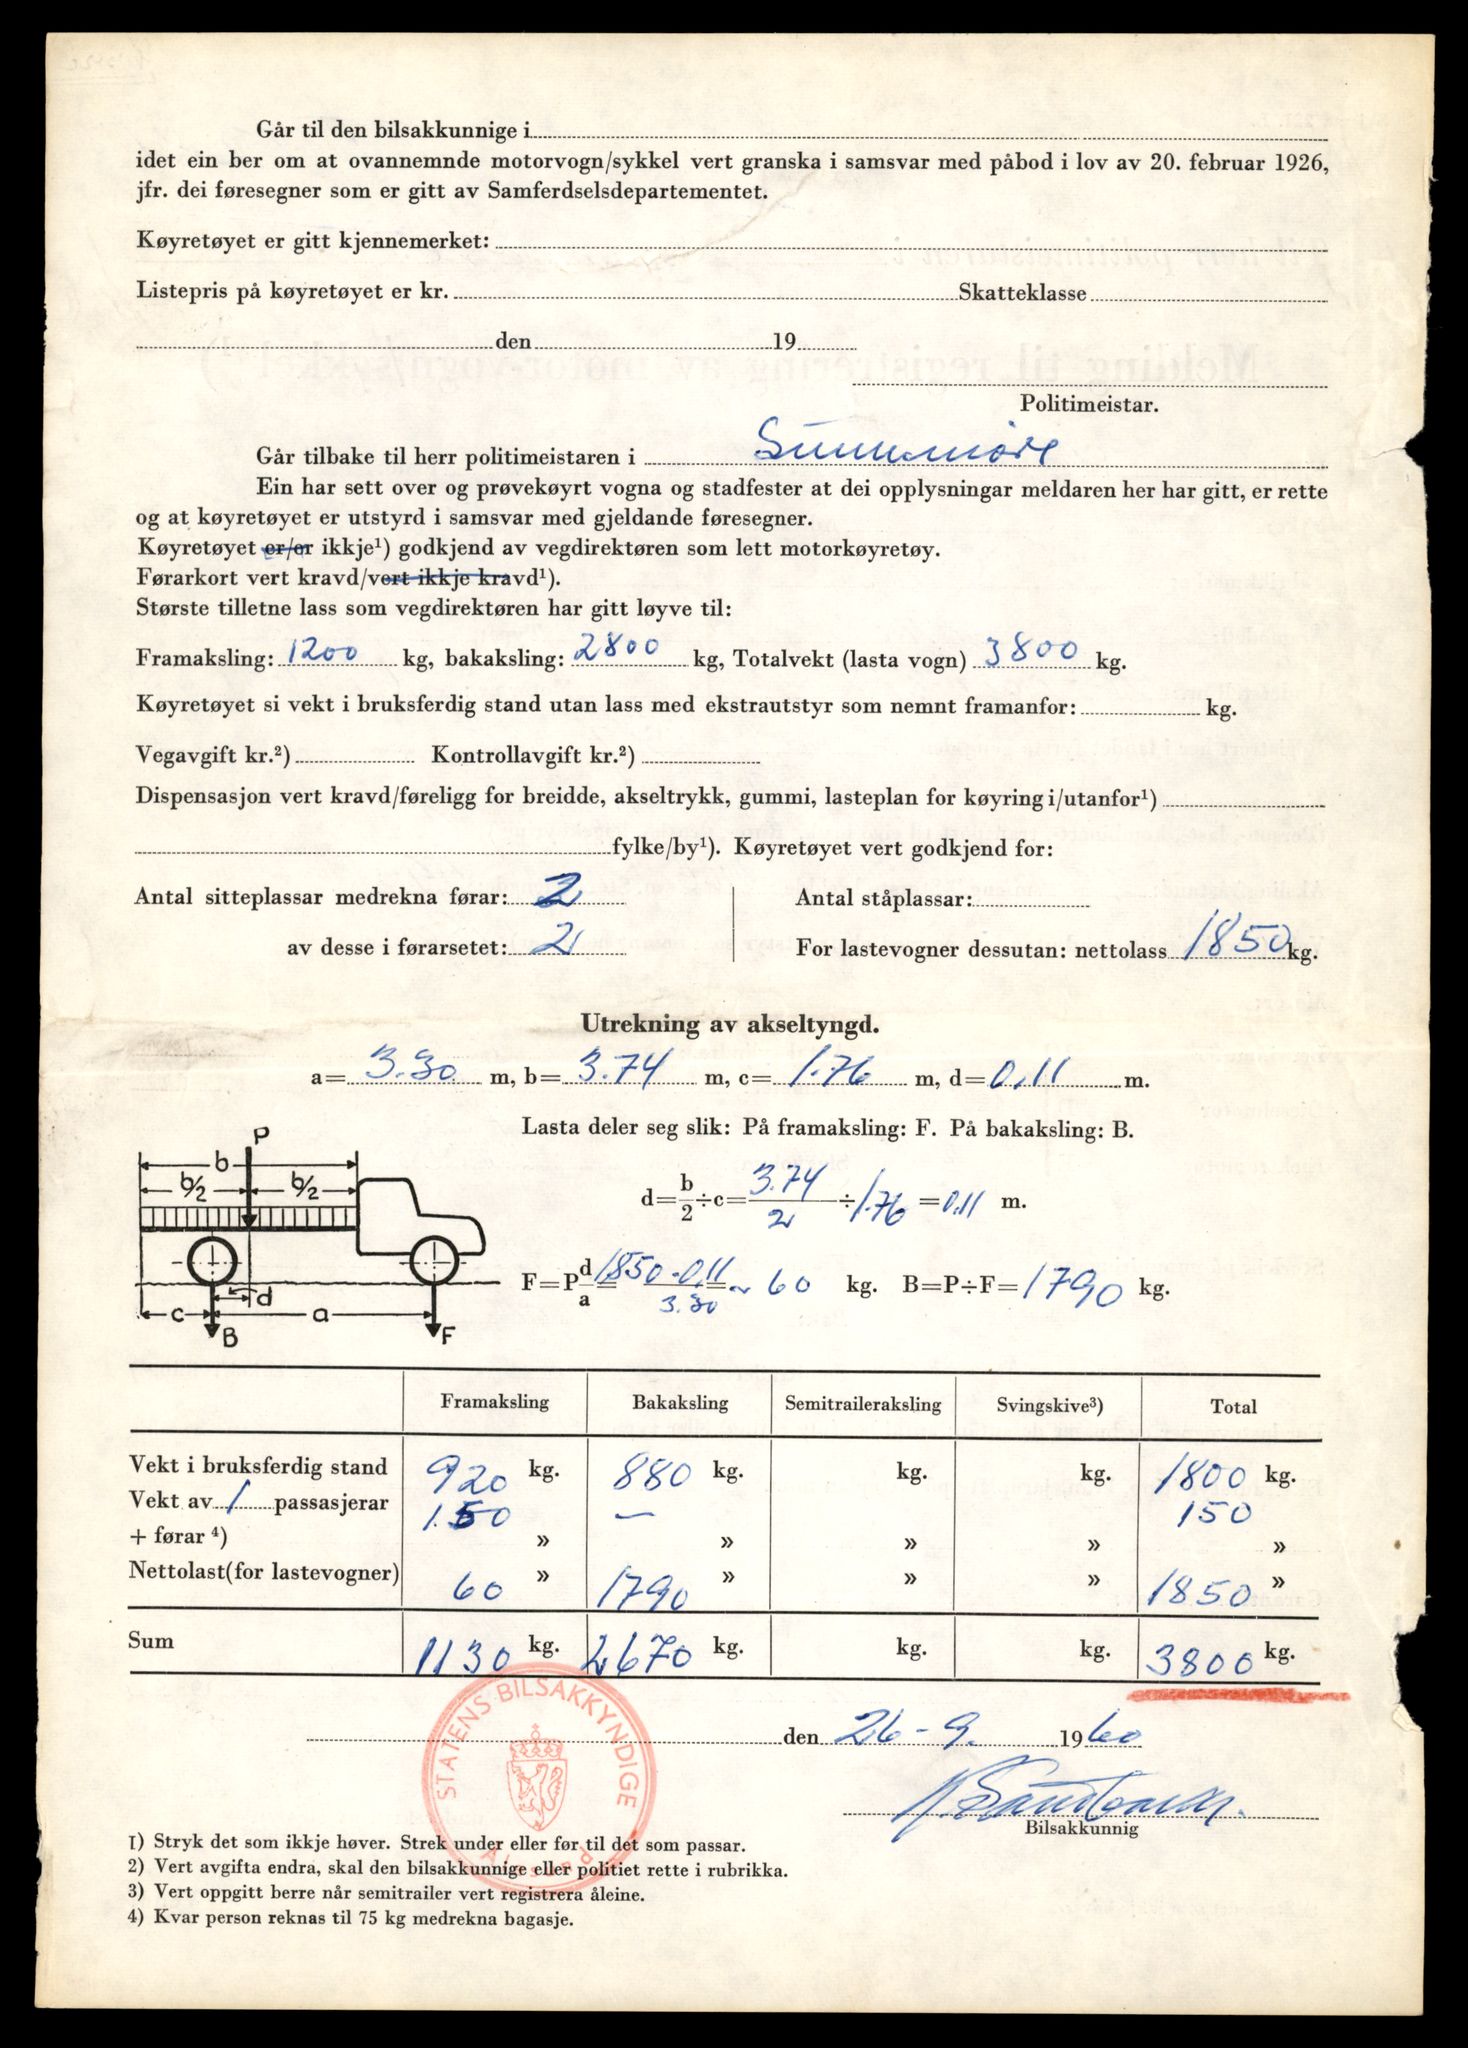 Går til den bilsakkunnige i
idet ein ber om at ovannemnde motorvogn/sykkel vert granska i samsvar med påbod i lov av 20. februar 1926,
jfr. dei føresegner som er gitt av Samferdselsdepartementet.
Køyretøyet er gitt kjennemerket:
Listepris på køyretøyet er kr. Skatteklasse
den 19
Politimeistar.
Går tilbake til herr politimeistaren i Sunnmöre
Ein har sett over og prøvekøyrt vogna og stadfester at dei opplysningar meldaren her har gitt, er rette
og at køyretøyet er utstyrd i samsvar med gjeldande føresegner.
Køyretøyet er/er ikkje¹) godkjend av vegdirektøren som lett motorkøyretøy.
Førarkort vert kravd/vert ikkje kravd¹).
Største tilletne lass som vegdirektøren har gitt løyve til:
Framaksling: 1200 kg, bakaksling: 2800 kg, Totalvekt (lasta vogn) 3800 kg.
Køyretøyet si vekt i bruksferdig stand utan lass med ekstrautstyr som nemnt framanfor: kg.
Vegavgift kr.²) Kontrollavgift kr.²)
Dispensasjon vert kravd/føreligg for breidde, akseltrykk, gummi, lasteplan for køyring i/utanfor¹)
fylke/by¹). Køyretøyet vert godkjend for:
Antal sitteplassar medrekna førar: 2 Antal ståplassar:
av desse i førarsetet: 2 For lastevogner dessutan: nettolass 1850 kg.
Utrekning av akseltyngd.
a= 3.30 m, b= 3.74 m, c= 1.76 m, d= 0,11 m.
Lasta deler seg slik: På framaksling: F. På bakaksling: B.
P
b
b/2 b/2
d= b/2 ÷c= 3.74/2 ÷ 1.76 = 0,11 m.
F=P d/a = 1850 · 0,11 / 3.30 = ~ 60 kg. B=P÷F= 1790 kg.
d
c a
B F
Framaksling Bakaksling Semitraileraksling Svingskive³) Total
Vekt i bruksferdig stand 920 kg. 880 kg. kg. kg. 1800 kg.
Vekt av 1 passasjerar 150 — 150
+ førar ⁴) » » » » »
Nettolast(for lastevogner) 60 » 1790 » » » 1850 »
Sum 1130 kg. 2670 kg. kg. kg. 3800 kg.
STATENS BILSAKKYNDIGE
Ålesund
den 26-9. 1960
Bilsakkunnig
1) Stryk det som ikkje høver. Strek under eller før til det som passar.
2) Vert avgifta endra, skal den bilsakkunnige eller politiet rette i rubrikka.
3) Vert oppgitt berre når semitrailer vert registrera åleine.
4) Kvar person reknas til 75 kg medrekna bagasje.